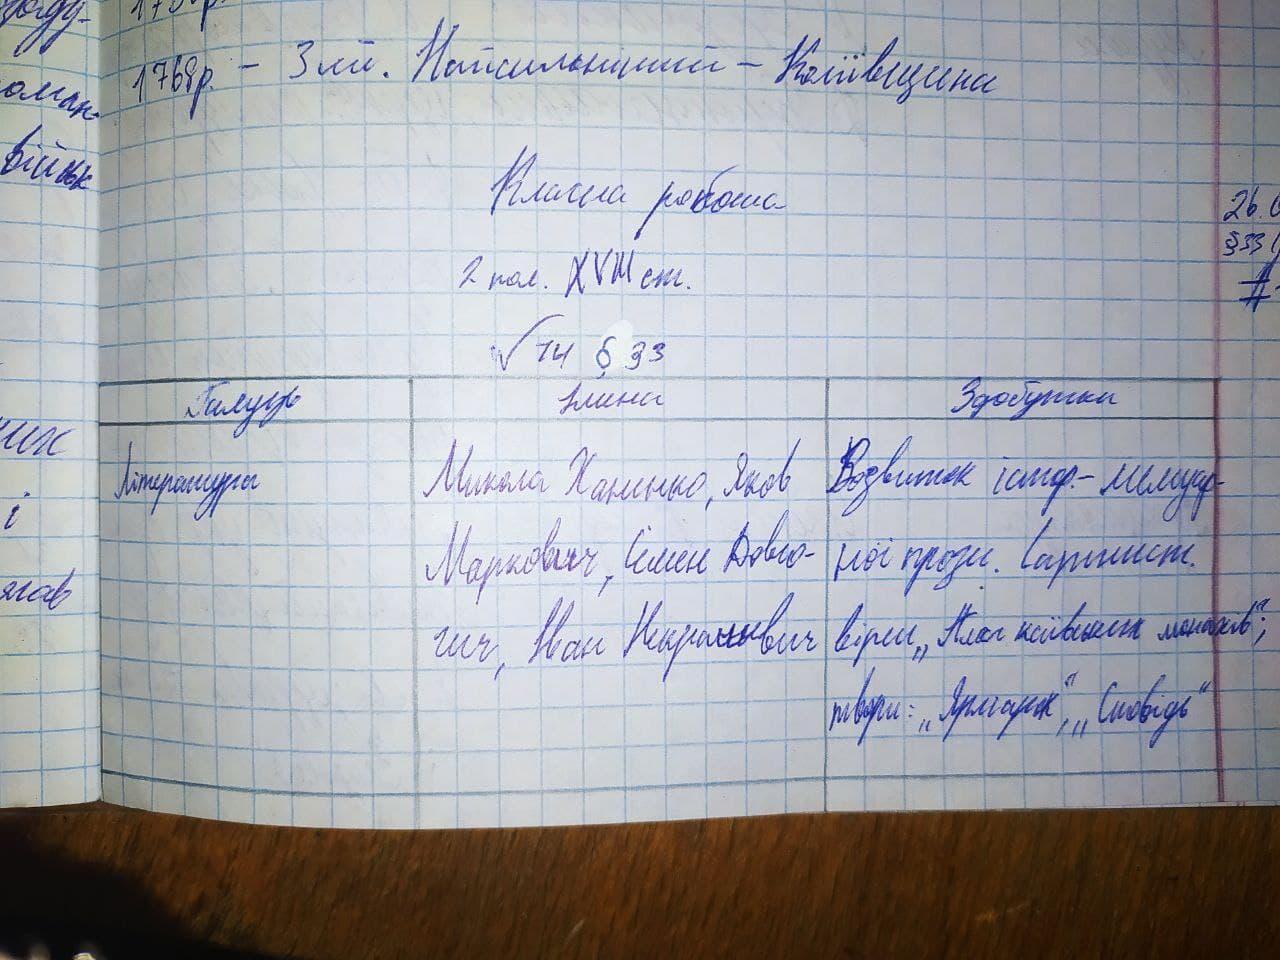 1768р. – 3 лип. Найсильніший – Коліївщина
військ
Класна робота
2 пол. XVIII ст.
√ 14 § 33
Галузь
Імена
Здобутки
Література
Микола Ханенко, Яків
Маркович, Семен Довго-
гич, Іван Некрашевич
Розвиток істор.- мемуар-
ної прози. Сатирист.
вірш „Плач київських монахів";
твори: „Ярмарок", „Сповідь"
§33